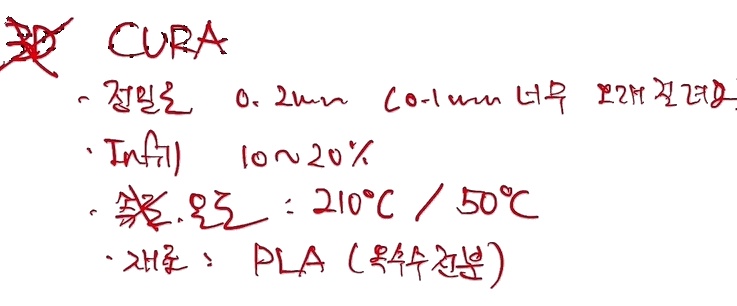 CURA
· 정밀도 0.2mm (0.1mm 너무 오래 걸려요
· Infill 10~20%
· 온도 : 210°C / 50°C
· 재료 : PLA (옥수수 전분)